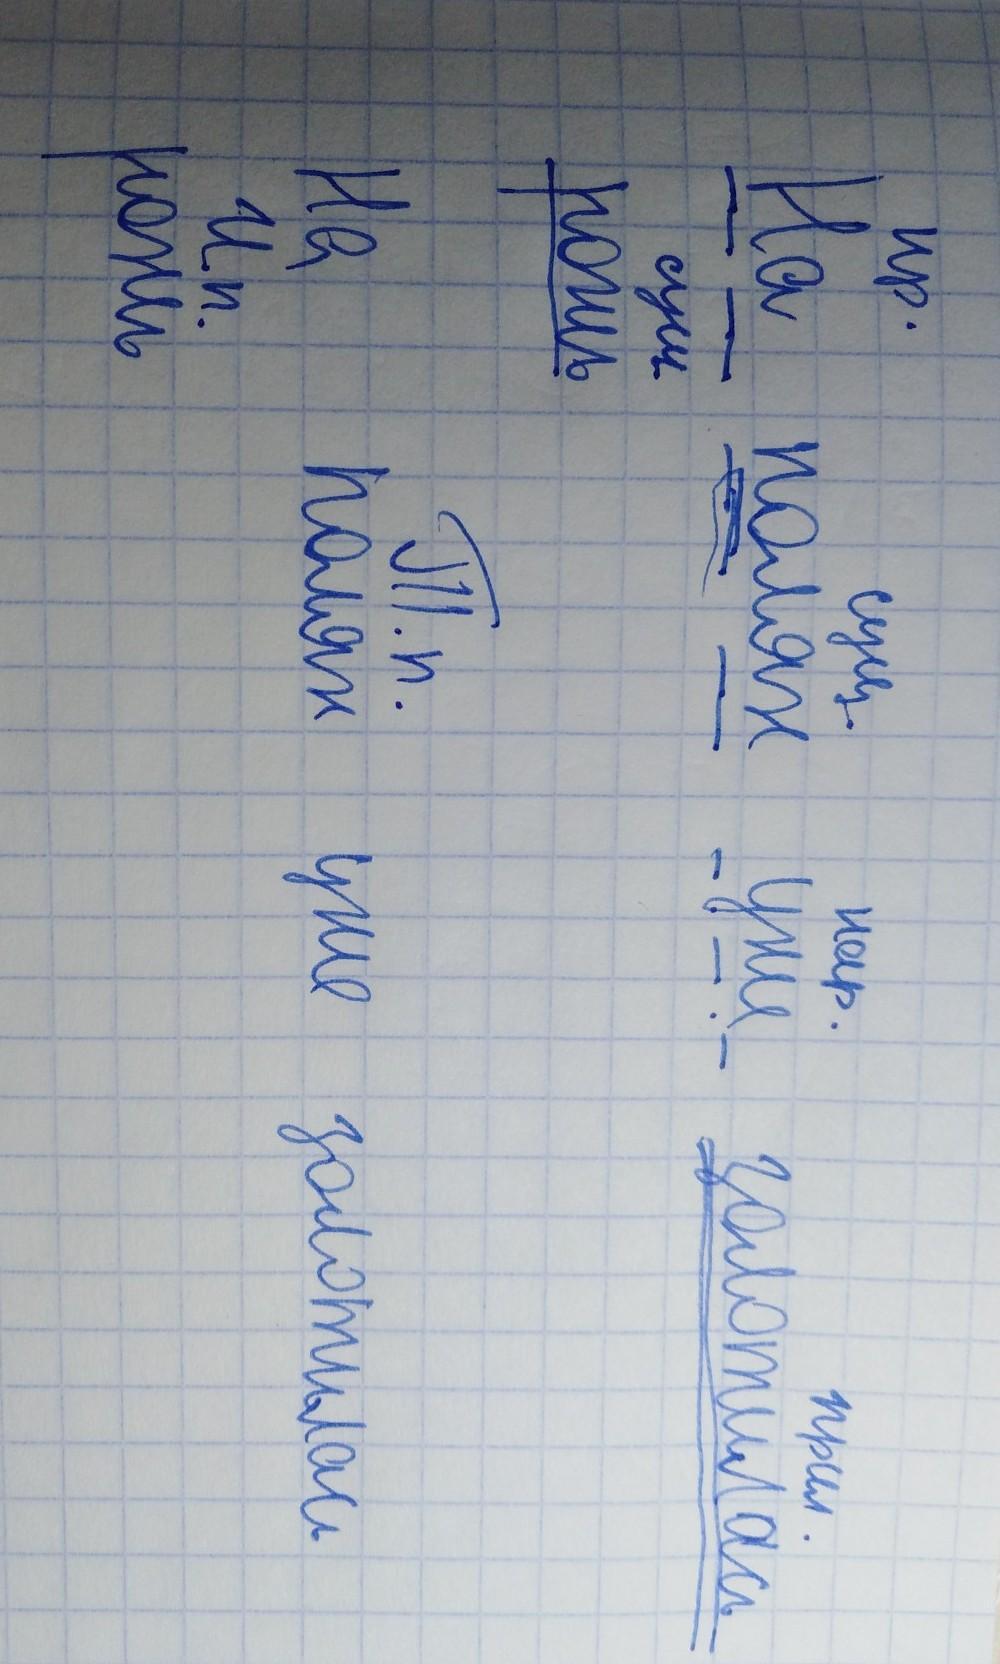 пр. сущ. нар. прил.
На полян уже золотилась
сущ
рожь
П.п.
На полян уже золотилась
И.п.
рожь